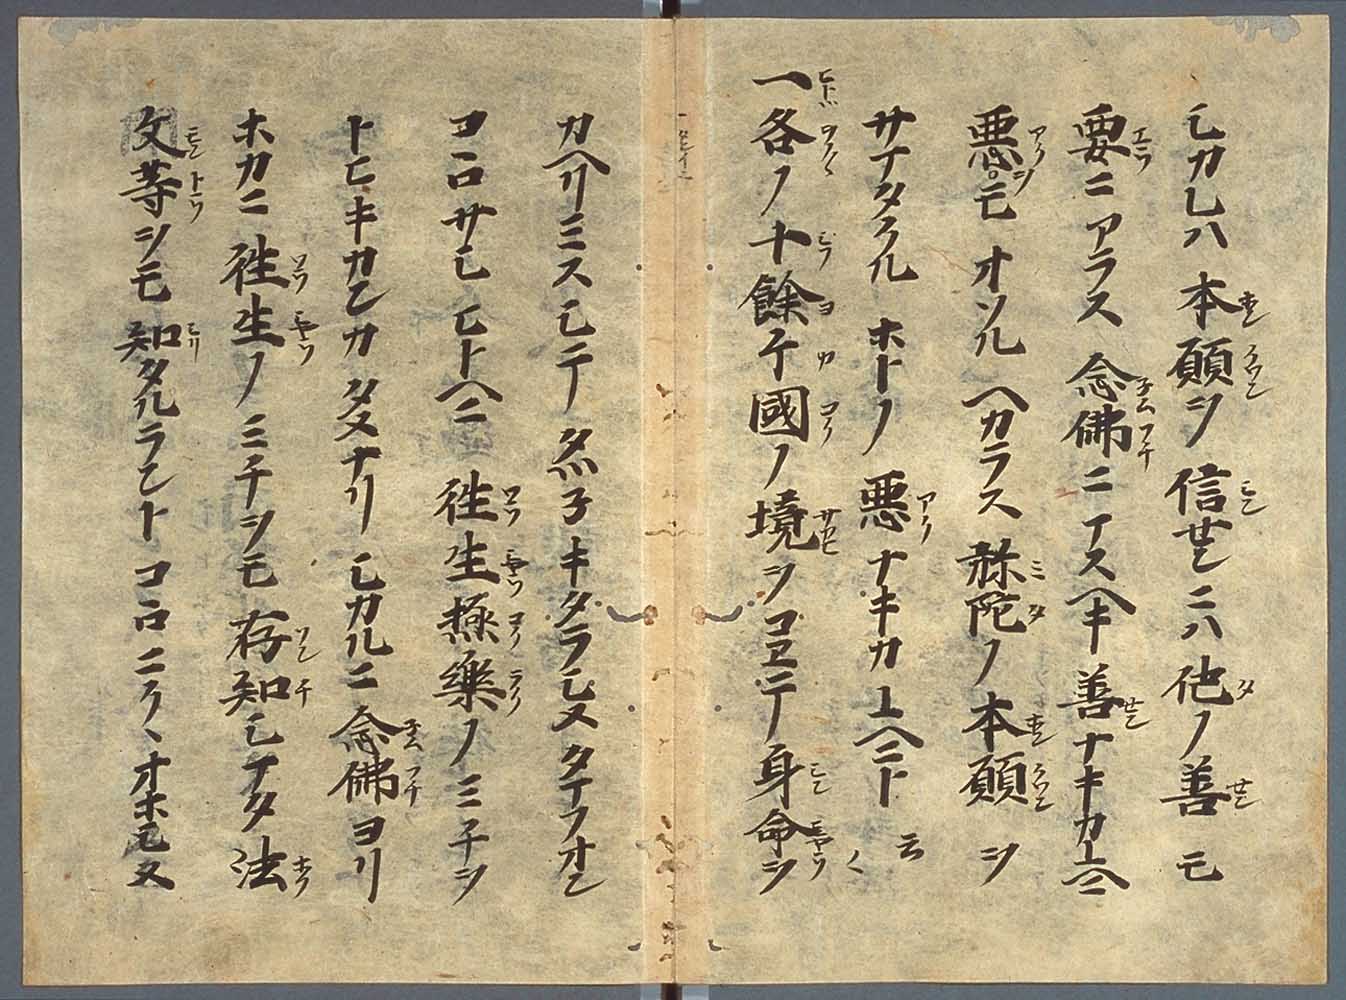 シカレハ本願ヲ信センニハ他ノ善モ
要ニアラス念佛ニマサルヘキ善ナキカユヘニ
悪ヲモオソルヘカラス弥陀ノ本願ヲ
サマタクルホトノ悪ナキカユヘニト云〳〵
一各ノ十餘ケ國ノ境ヲコエテノ身命ヲ
カヘリミスシテタツ子キタラシメタマフオン
コロサシヒトヘニ往生極樂ノミチヲ
トヒキカンカタメナリシカルニ念佛ヨリ
ホカニ往生ノミチヲモ存知シマタ法
文等ヲモ知タルラントコロニクヽオホシメ